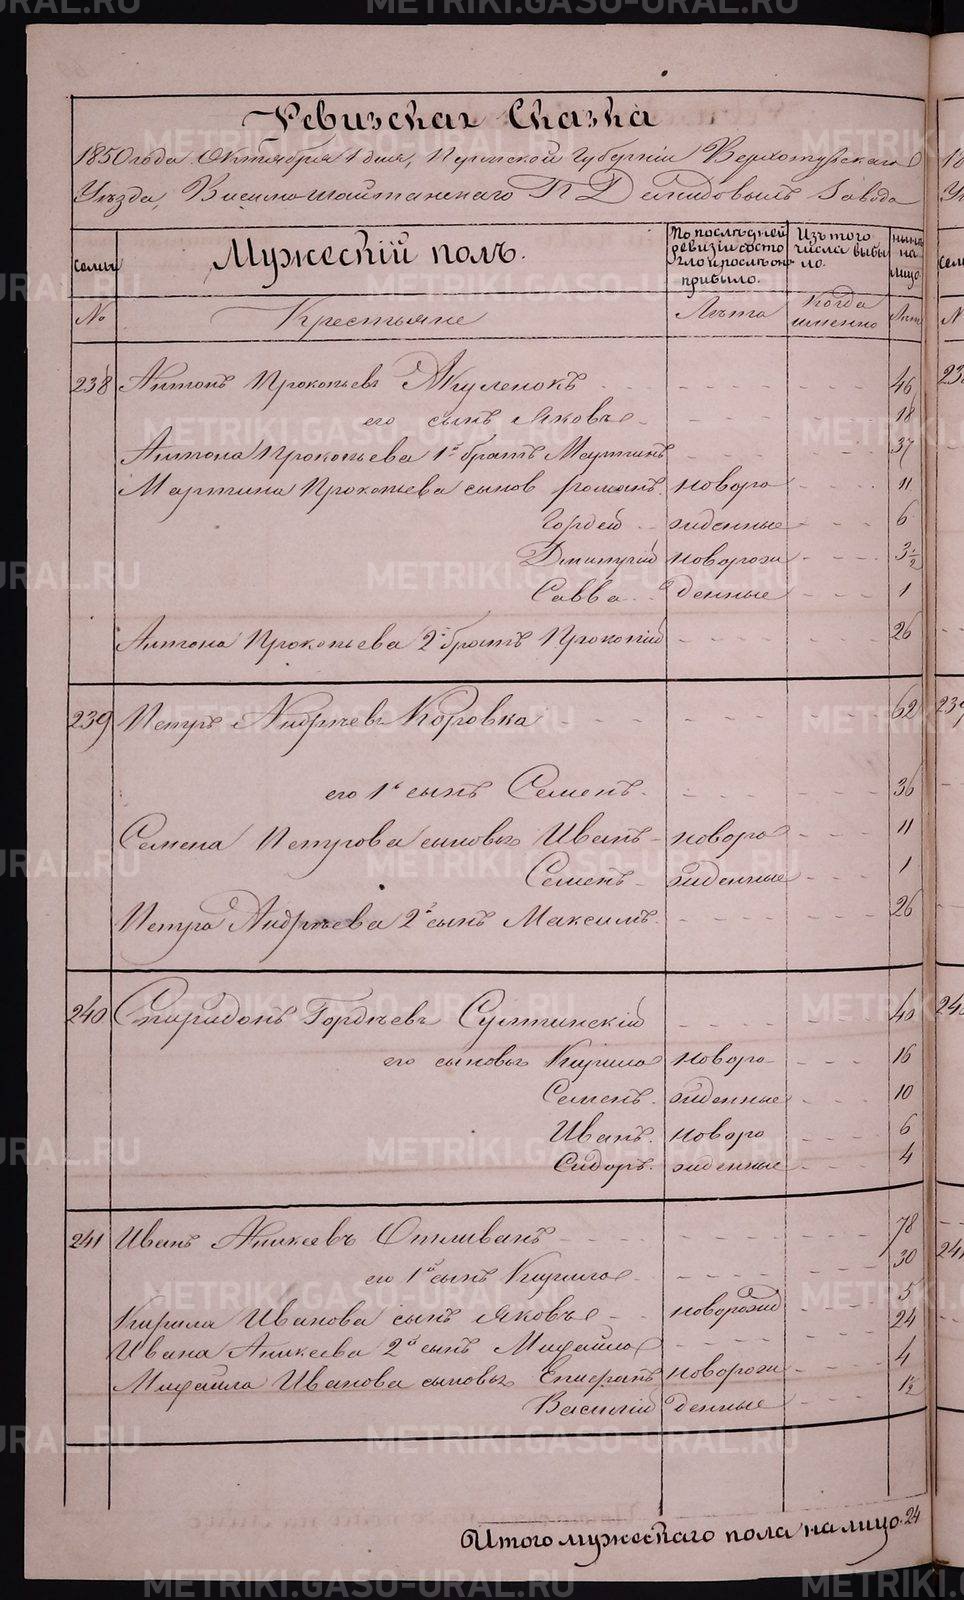 Ревизская Сказка
1850 года Октября 1 дня, Пермской Губерніи Верхотурскаго
Уѣзда, Висимошайтанскаго П Демидовыхъ Завода
семьи
Мужескій полъ.
По послѣдней ревизіи состояло и послѣ оной прибыло.
Изъ того числа выбыло.
нынѣ на лицо.
№
Крестьяне
Лѣта
Когда именно
Лѣта
238 Антонъ Прокопьевъ Акуленокъ 46
его сынъ Яковъ 18
Антона Прокопьева 1й братъ Мартинъ 37
Мартина Прокопьева сынов Романъ новоро 11
Гордей жденные 6
Дмитрій новорож 3 1/2
Савва денные 1
Антона Прокопьева 2й братъ Прокопій 26
239 Петръ Андреевъ Коровка 62
его 1й сынъ Семенъ 36
Семена Петрова сыновья Иванъ новоро 11
Семенъ жденные 1
Петра Андреева 2й сынъ Максимъ 26
240 Спиридонъ Гордѣевъ Султинскій 40
его сыновья Кирило новоро 16
Семенъ жденные 10
Иванъ новоро 6
Сидоръ жденные 4
241 Иванъ Аникеевъ Отливанъ 78
его 1й сынъ Кирило 30
Кирила Иванова сынъ Яковъ новорожд 5
Ивана Аникеева 2й сынъ Михайло 24
Михайла Иванова сыновья Епифанъ новорож 4
Василій денные 1 1/2
Итого мужескаго пола на лицо 24
METRIKI.GASO-URAL.RU